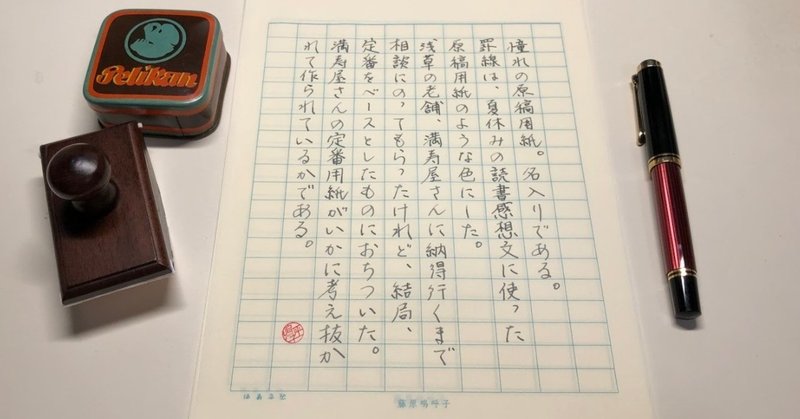 憧れの原稿用紙。名入りである。
罫線は、夏休みの読書感想文に使った
原稿用紙のような色にした。
浅草の老舗、満寿屋さんに納得行くまで
相談にのってもらったけれど、結局、
定番をベースとしたものにおちついた。
満寿屋さんの定番用紙がいかに考え抜か
れて作られているかである。
Pelikan